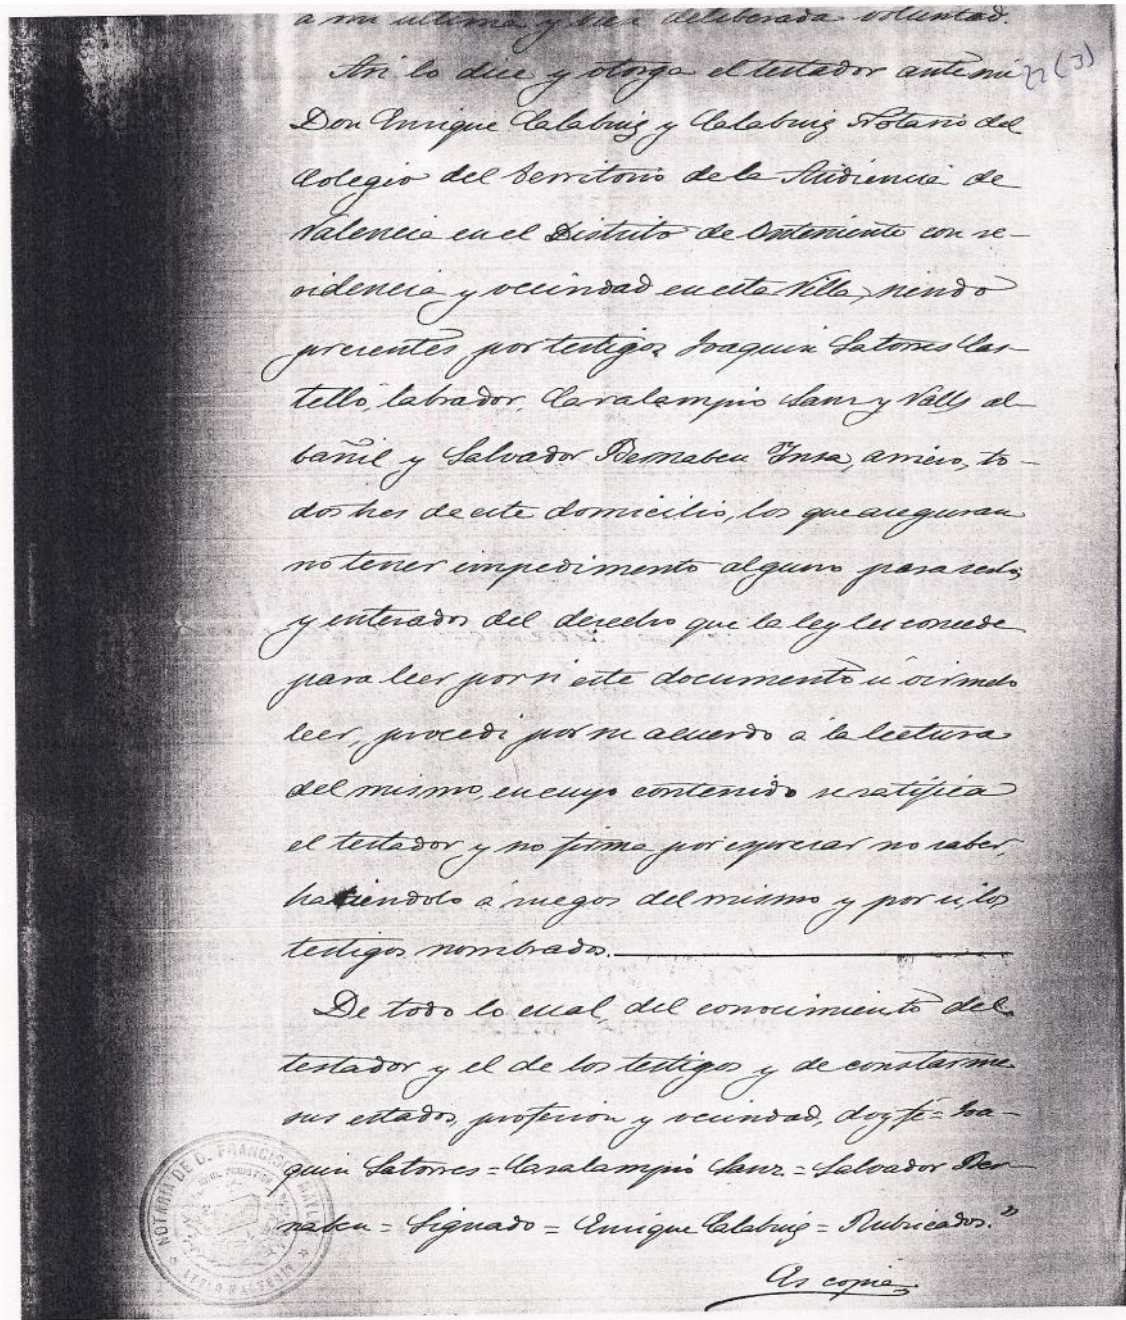 a mi ultima y bien deliberada voluntad.
Asi lo dice y otorga el testador ante mi
22 (3)
Don Enrique Calabuig y Calabuig Notario del
Colegio del Territorio de la Audiencia de
Valencia en el Distrito de Onteniente con re-
sidencia y vecindad en esta Villa, siendo
presentes por testigos Joaquin Satorres Cas-
telló, labrador, Caralampio Sanz y Valls al-
bañil y Salvador Bernabeu Insa, arriero, to-
dos tres de este domicilio, los que aseguran
no tener impedimento alguno para serlo,
y enterados del derecho que la ley les concede
para leer por si este documento ú oirmelo
leer, procedi por su acuerdo á la lectura
del mismo, en cuyo contenido se ratifica
el testador y no firma por espresar no saber,
haciendolo á ruegos del mismo y por si, los
testigos nombrados.
De todo lo cual, del conocimiento del
testador y el de los testigos y de constarme
sus estados, profesion y vecindad, doy fé = Joa-
quin Satorres = Caralampio Sanz = Salvador Ber-
nabeu = Signado = Enrique Calabuig = Rubricados."
Es copia
NOTARIA DE D. FRANCISCO